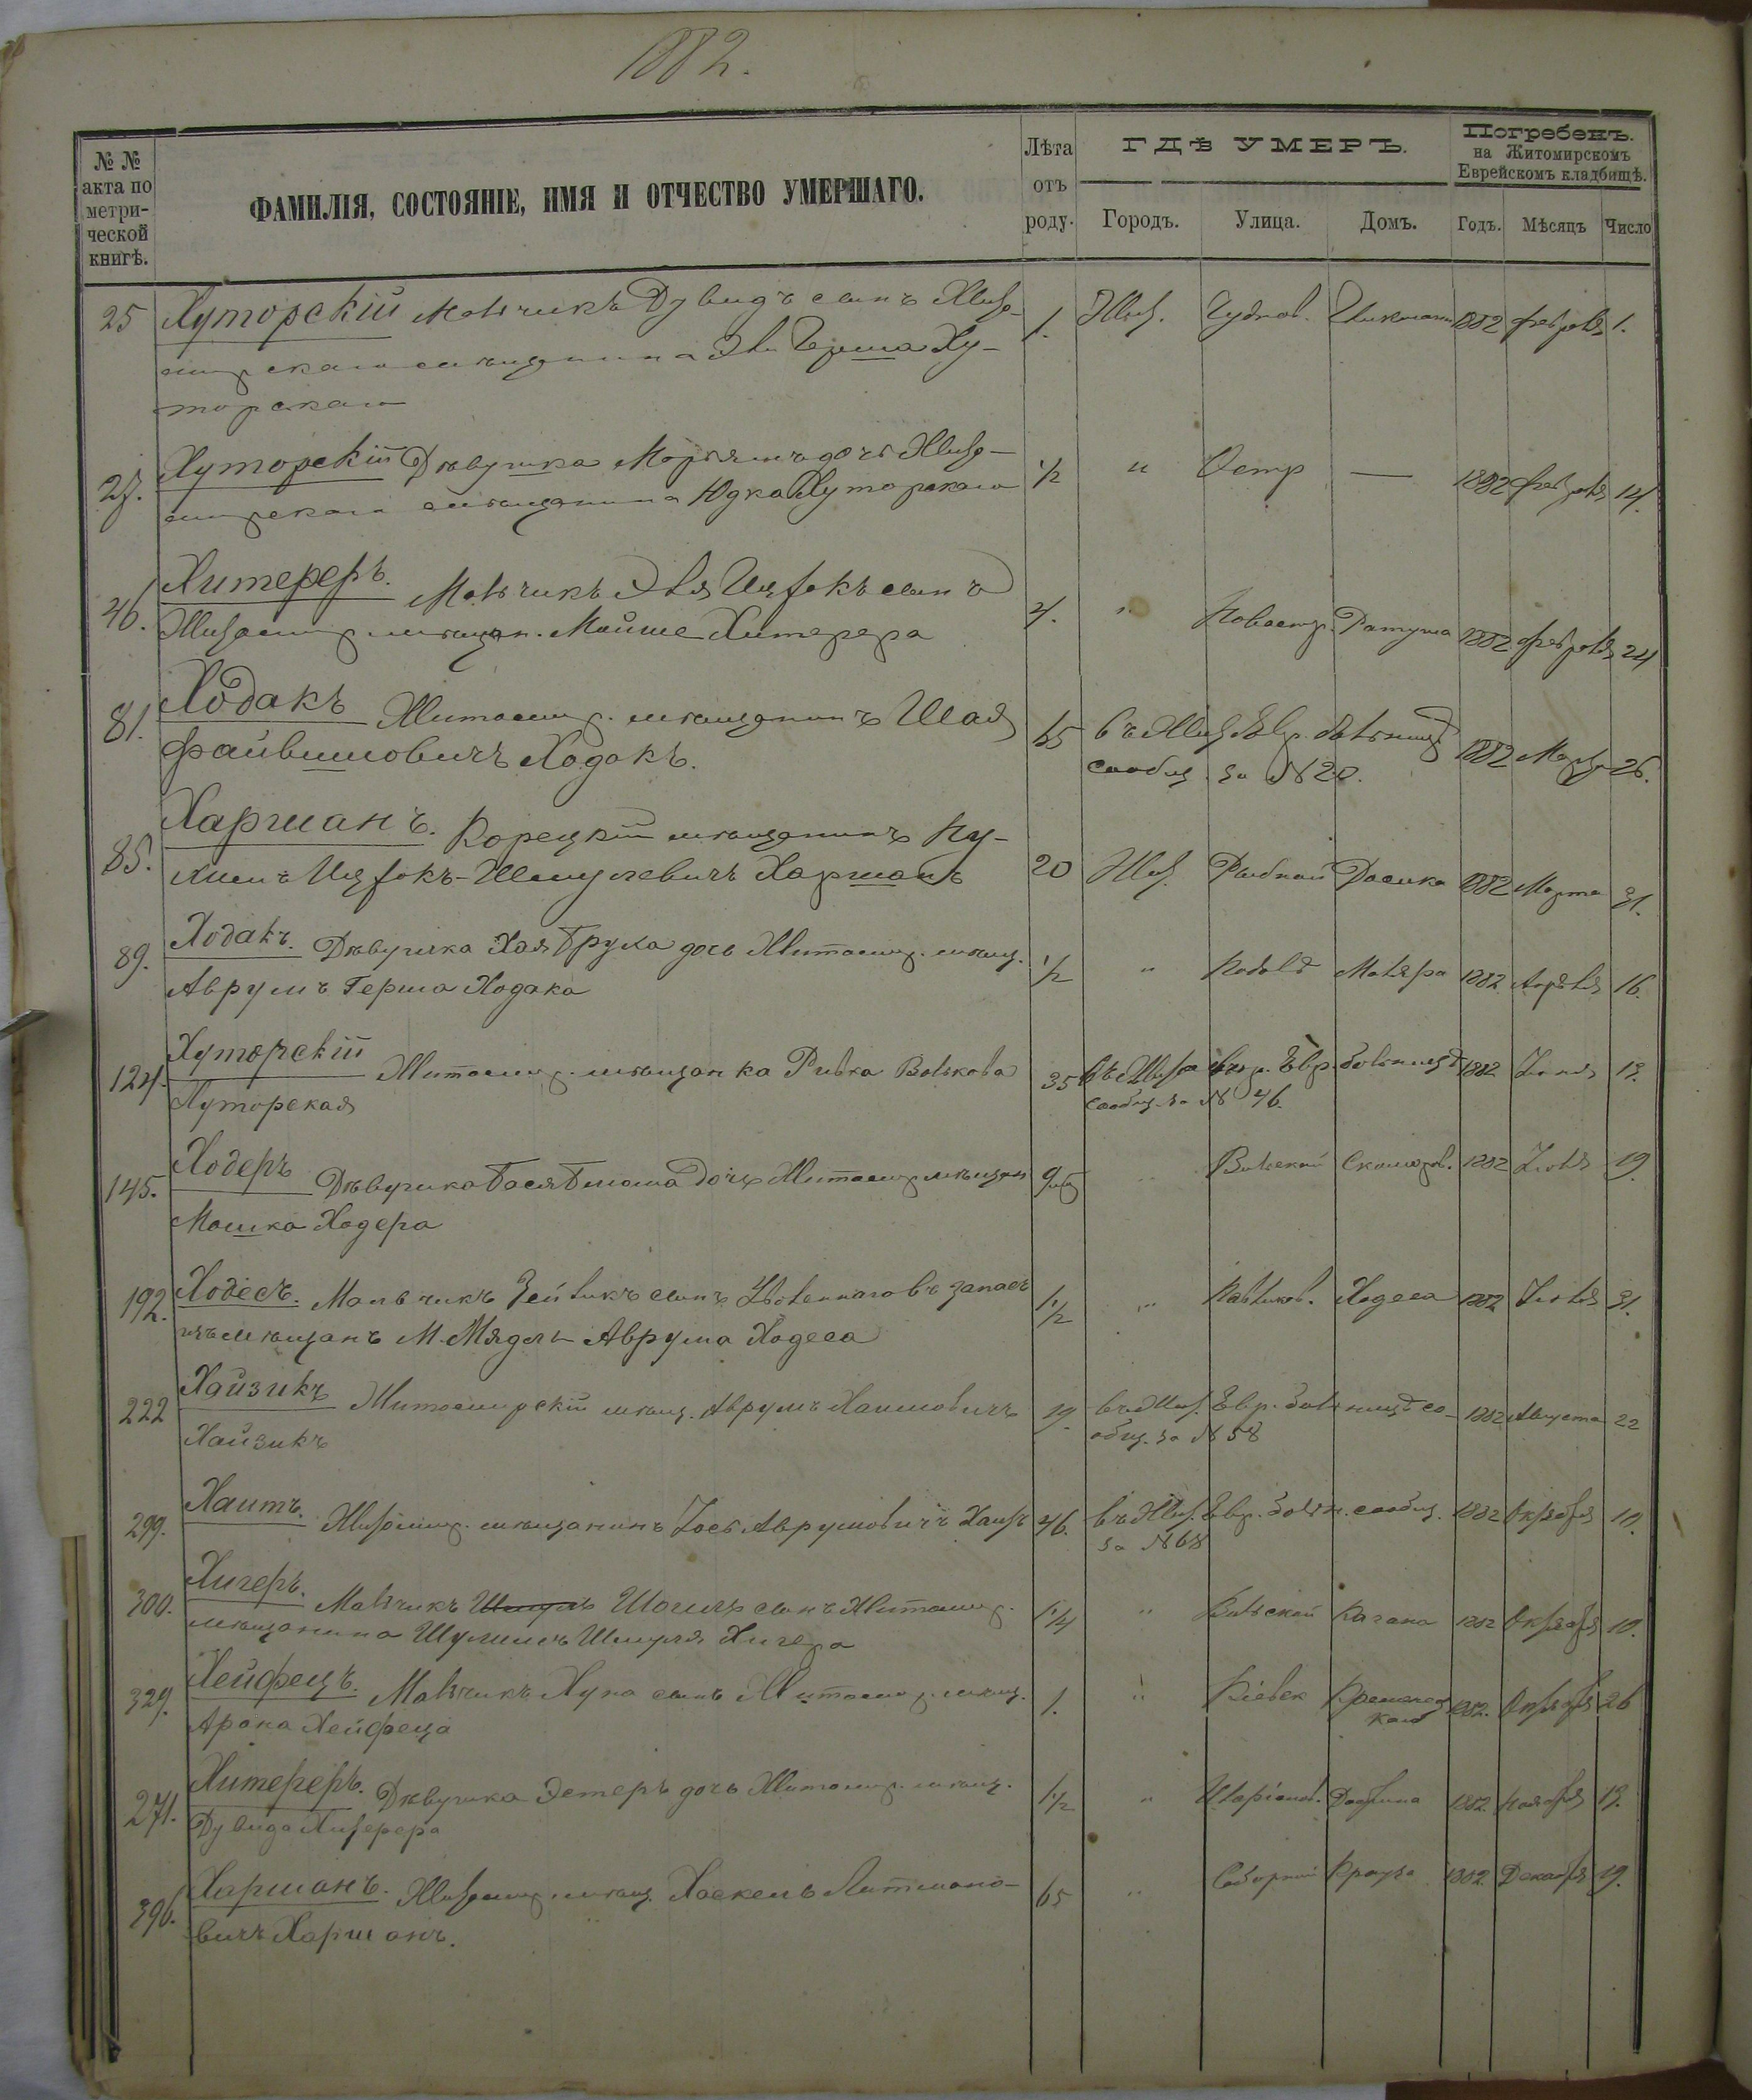 1882.
№ №
акта по
метри-
ческой
книгѣ.
ФАМИЛІЯ, СОСТОЯНІЕ, ИМЯ И ОТЧЕСТВО УМЕРШАГО.
Лѣта
отъ
роду.
ГДѢ УМЕРЪ.
Городъ. Улица. Домъ.
Погребенъ.
на Житомирскомъ
Еврейскомъ кладбищѣ.
Годъ. Мѣсяцъ Число
25 Хуторскій Мальчикъ Дувидъ сынъ Жито- 1. Жит. Чуднов. 1882 февраля 1.
мирскаго мѣщанина Эли Герша Ху-
торскаго
27. Хуторскій Дѣвушка Марьямъ дочь Жито- 1/2 " Остр — 1882 февраля 14.
мирскаго мѣщанина Юдка Хуторскаго
46. Хитереръ. Мальчикъ Эля Ицхокъ сынъ 4. " Новостр. Ратуша 1882 февраля 24
Житомир. мѣщан. Мойше Хитерера
81. Ходакъ Житомир. мѣщанинъ Шая 65 въ Жит. Евр. больницѣ 1882 Март 26.
Файвишовичъ Ходакъ. сообщ. за № 20.
85. Харшанъ. Корецкій мѣщанинъ Ну- 20 Жит. Рыбной Марта 31.
химъ Ицхокъ-Шмулевичъ Харшанъ 1882
89. Ходакъ. Дѣвушка Хая Бруха дочь Житомир. мѣщ. 1/2 " Маляра 1882 Апрѣля 16.
Аврумъ Герша Ходака
124. Хуторскій Житомир. мѣщанка Ривка Волькова 35 въ Житомир. Евр. больницѣ 1882 Іюня 13.
Хуторская сообщ. за № 46.
145. Ходеръ Дѣвушка Бася Блюма дочь Житомир. мѣщан 9 " Вильской 1882 Іюля 19.
Мошка Ходера
192. Ходесъ. Мальчикъ Зейликъ сынъ Уволеннаго въ запасъ 1 1/2 " Павликов. Ходеса 1882 Іюля 31.
изъ мѣщанъ М. Мядлъ Аврума Ходеса
222 Хайзикъ Житомирскій мѣщ. Аврумъ Хаимовичъ 19. въ Жит. Евр. больницѣ со- 1882 Августа 22
Хайзикъ общ. за № 58
299. Хаитъ. Житомир. мѣщанинъ Іось Аврумовичъ Хаитъ 46. въ Жит. Евр. больн. сообщ. 1882 Октября 10.
за № 68
300. Хигеръ. Мальчикъ Шмуль сынъ Житомир. 1 1/4 " Вильской Кагана 1882 Октября 10.
мѣщанина Шулимъ Шмуля Хигера
329. Хейфецъ. Мальчикъ Хуна сынъ Житомир. мѣщ. 1. " Кіевск 1882. Октября 26
Арона Хейфеца
271. Хитереръ. Дѣвушка Эстеръ дочь Житомир. мѣщ. 1 1/2 " 1882. Ноября 13.
Дувида Хитерера
396. Харшанъ. Житомир. мѣщ. Хаскель Литмано- 65 " Соборной Крауза 1882. Декабря 19.
вичъ Харшанъ.